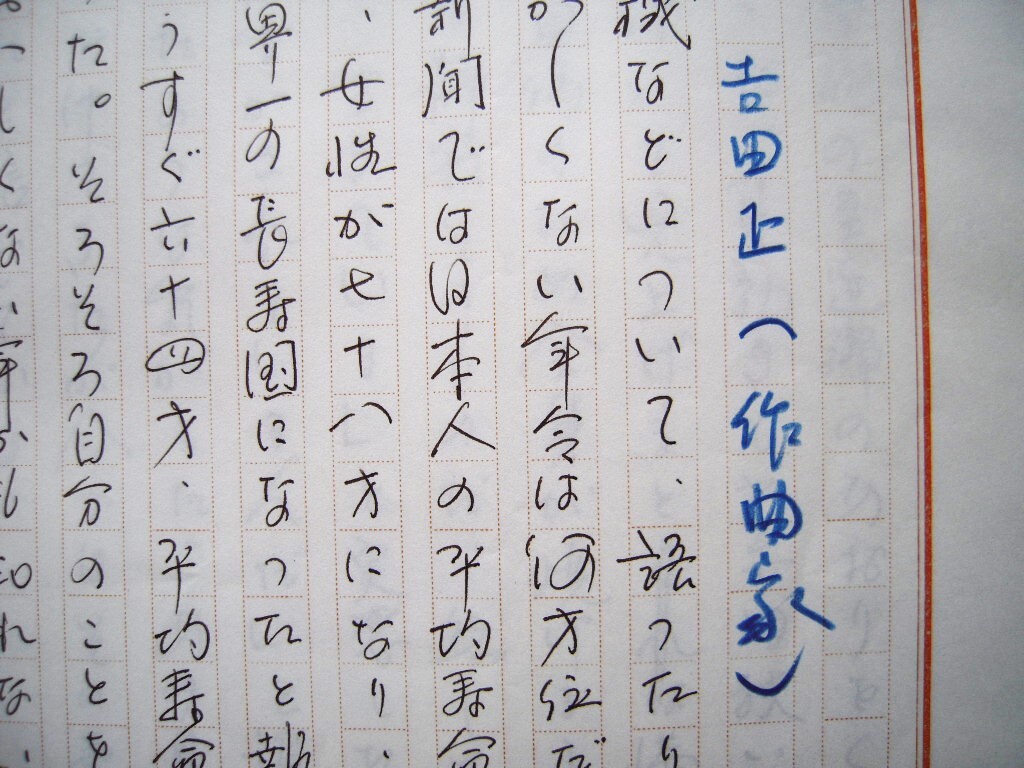 吉田正(作曲家)
機などについて、語ったり
かしくない年令は何才位だ
新聞では日本人の平均寿命
、女性が七十八才になり、
界一の長寿国になったと報
うすぐ六十四才、平均寿命
た。そろそろ自分のことを
しくない事かも知れない